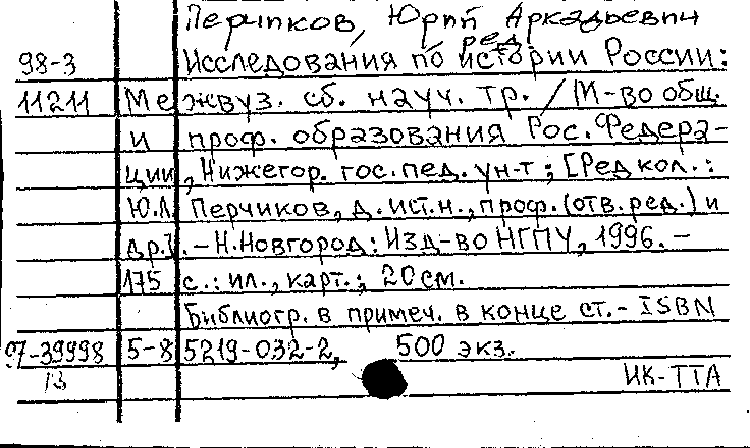 Перчиков, Юрий Аркадьевич
ред.
98-3 Исследования по истории России:
11211 Межвуз. сб. науч. тр. / М-во общ.
и проф. образования Рос. Федера-
ции, Нижегор. гос. пед. ун-т ; [Редкол.:
Ю.А. Перчиков, д. ист. н., проф. (отв. ред.) и
др.]. – Н.Новгород: Изд-во НГПУ, 1996. –
175 с.: ил., карт.; 20 см.
Библиогр. в примеч. в конце ст. – ISBN
97-39998 5-85219-032-2, 500 экз.
13 ИК-ТТА